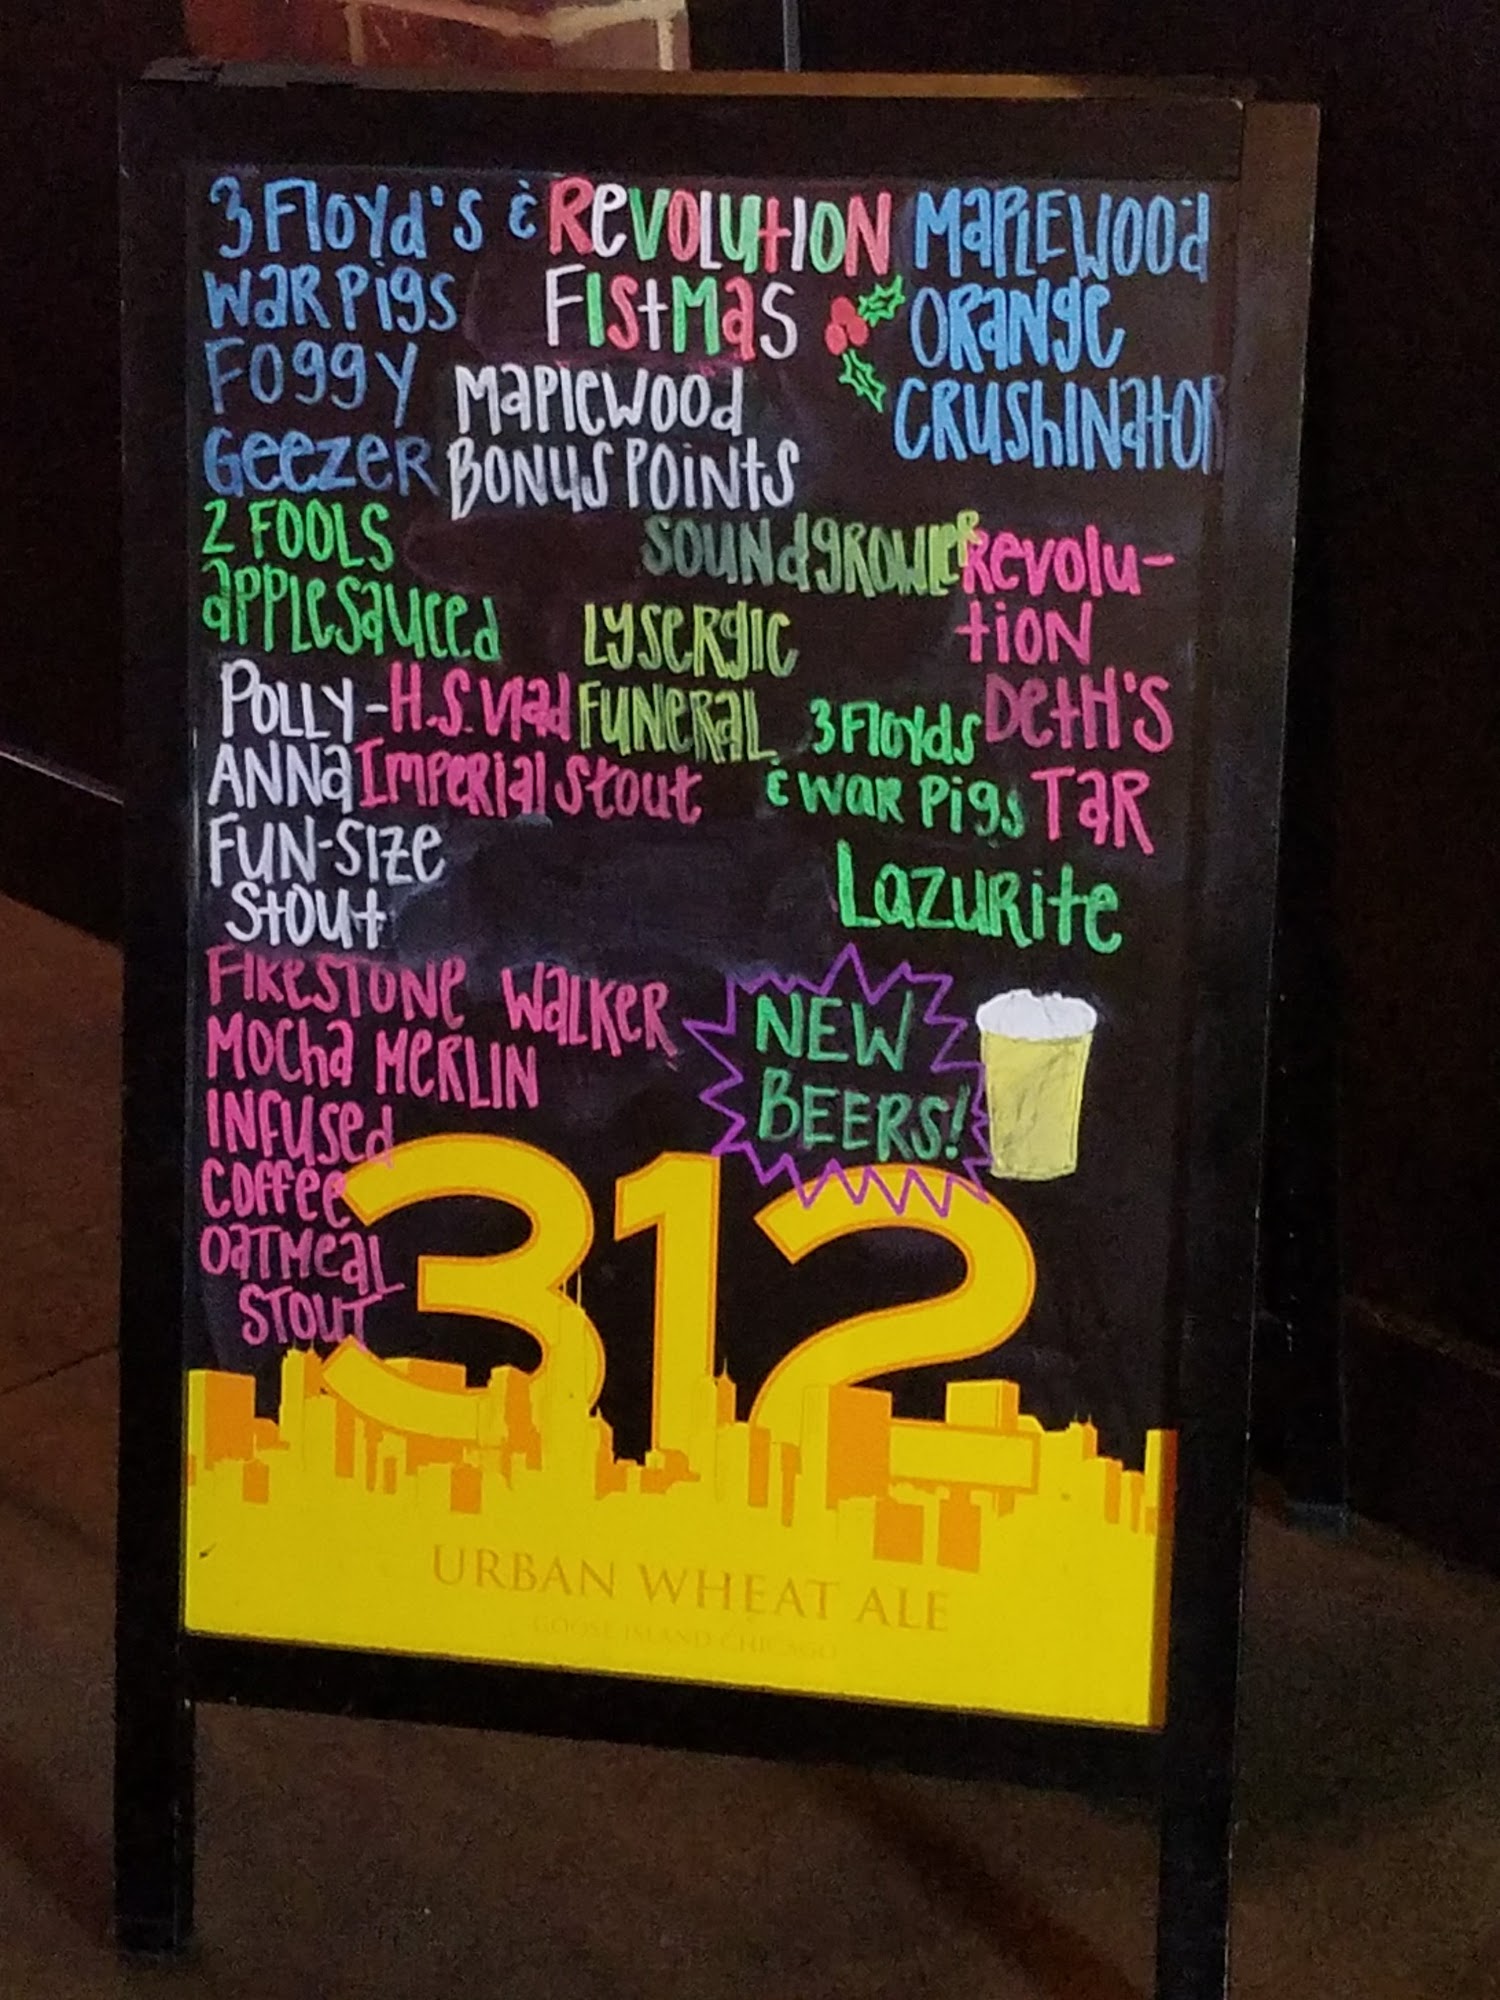 3 Floyd's &
War Pigs
Foggy
Geezer
Revolution
Fistmas
Maplewood
Orange
Crushinator
Maplewood
Bonus Points
2 Fools
Applesauced
Soundgrowler
Lysergic
Funeral
Revolu-
tion
Deth's
Tar
Polly-
Anna
Fun-Size
Stout
H.S. Vlad
Imperial Stout
3 Floyds
& War Pigs
Lazurite
Firestone Walker
Mocha Merlin
Infused
Coffee
Oatmeal
Stout
NEW
BEERS!
312
URBAN WHEAT ALE
GOOSE ISLAND CHICAGO